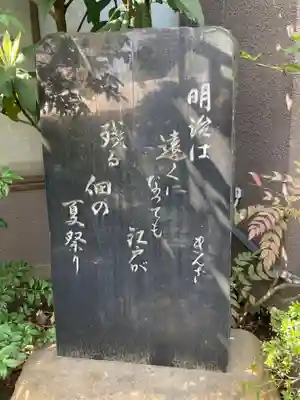 明治は
遠くに
なっても
江戸が
残る佃の
夏祭り